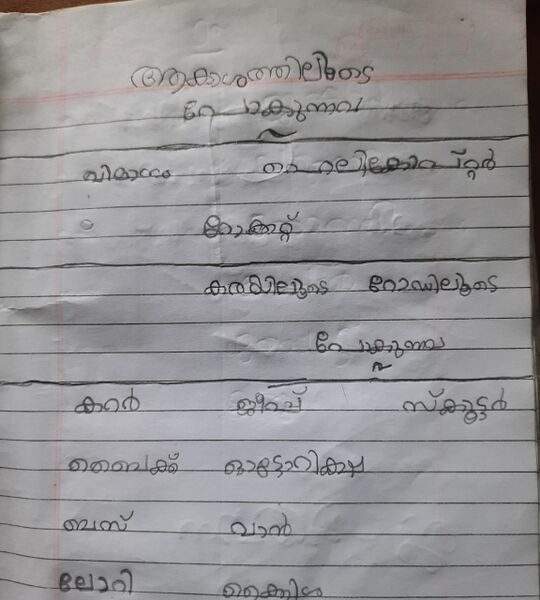 ആകാശത്തിലൂടെ
പോകുന്നവ
വിമാനം ഹെലികോപ്റ്റർ
റോക്കറ്റ്
കരയിലൂടെ റോഡിലൂടെ
പോകുന്നവ
കാർ ജീപ്പ് സ്കൂട്ടർ
ബൈക്ക് ഓട്ടോറിക്ഷ
ബസ് വാൻ
ലോറി സൈക്കിൾ